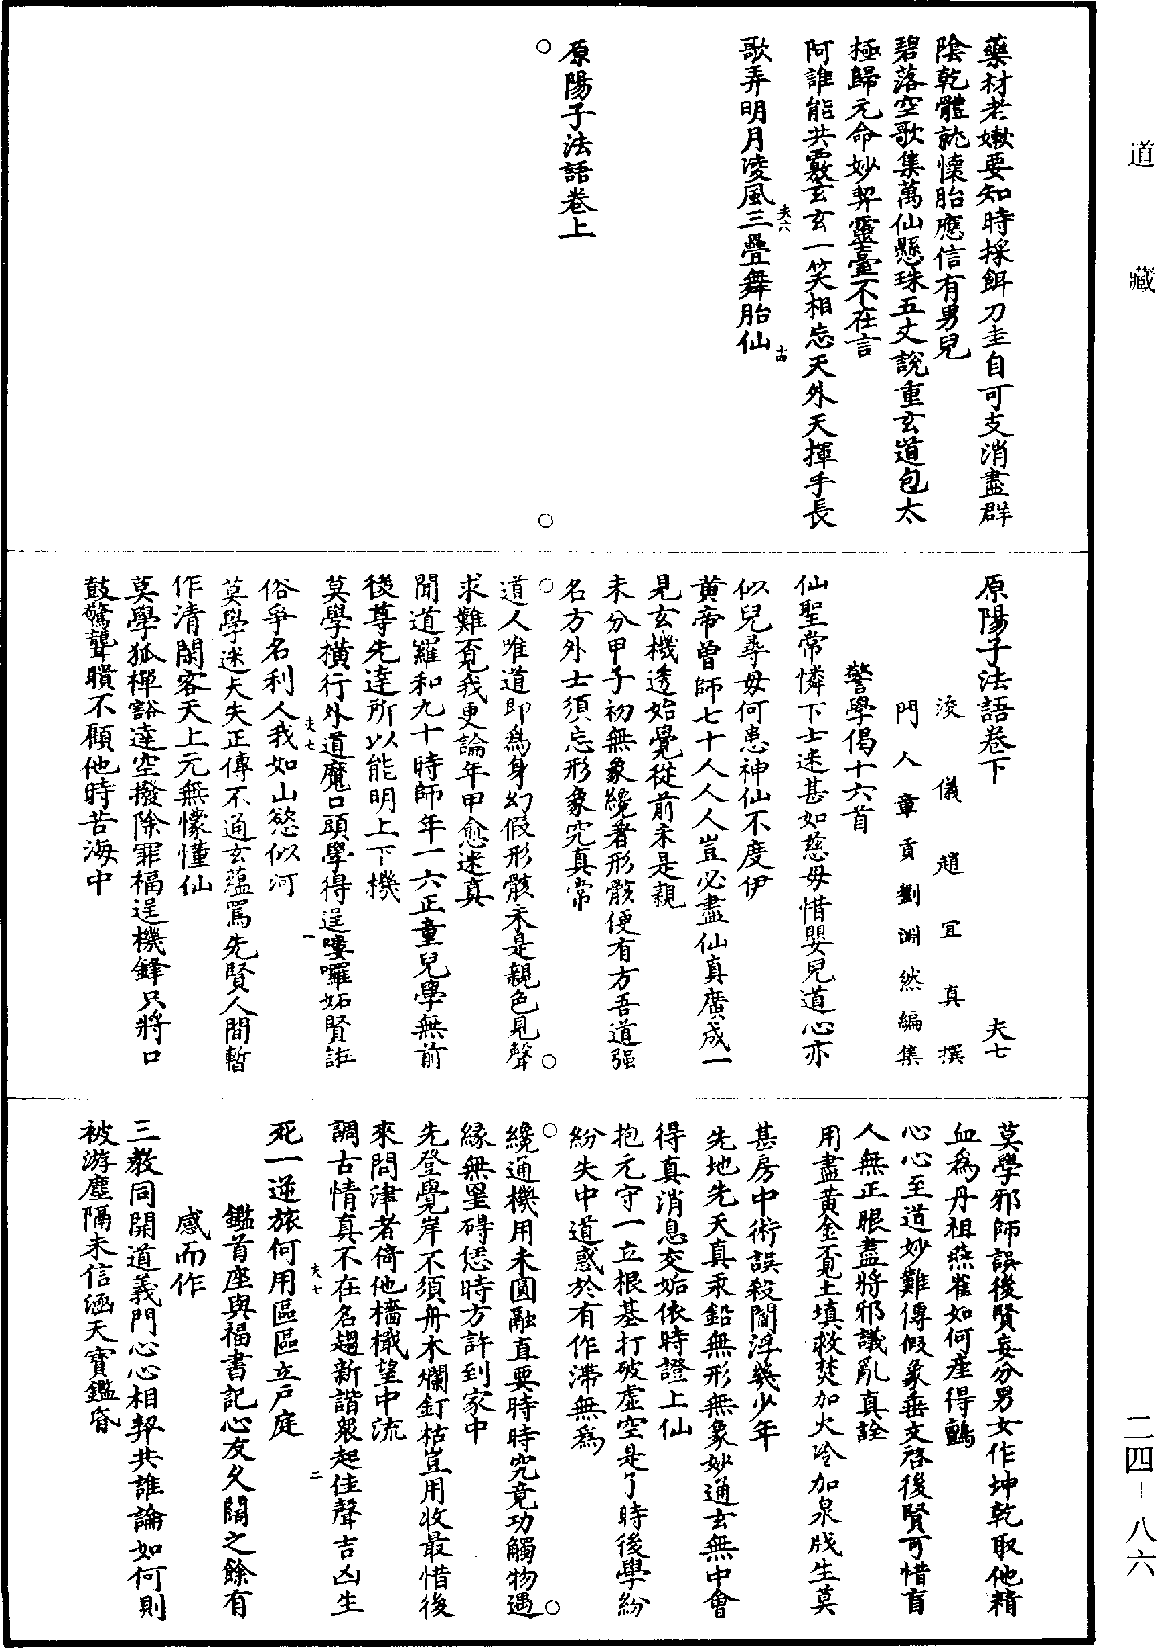 道藏
藥材老嫩要知時採餌刀圭自可支消盡群
陰乾體就懷胎應信有男兒
碧落空歌集萬仙懸珠五丈說重玄道包太
極歸元命妙契靈臺不在言
阿誰能共覈玄玄一笑相忘天外天揮手長
歌弄明月凌風三疊舞胎仙
夫六
十四
原陽子法語卷上
原陽子法語卷下
夫七
浚儀趙宜真撰
門人章貢劉淵然編集
警學偈十六首
仙聖常憐下士迷甚如慈母惜嬰兒道心亦
似兒尋母何患神仙不度伊
黃帝曾師七十人人人豈必盡仙真廣成一
見玄機透始覺從前未是親
未分甲子初無象纔著形骸便有方吾道強
名方外士須忘形象究真常
道人唯道即為身幻假形骸未是親色見聲
求難覓我更論年甲愈迷真
聞道羅和九十時師年一六正童兒學無前
後尊先達所以能明上下機
莫學橫行外道魔口頭學得逞嘍囉妬賢誑
俗爭名利人我如山慾似河
夫七
一
莫學迷夫失正傳不通玄蘊罵先賢人間暫
作清閑客天上元無懞懂仙
莫學狐禪豁達空撥除罪福逞機鋒只將口
鼓驚聾瞶不顧他時苦海中
莫學邪師誤後賢妄分男女作坤乾取他精
血為丹祖燕雀如何產得鸇
心心至道妙難傳假象垂文啓後賢可惜盲
人無正眼盡將邪議亂真詮
用盡黃金覓土填救焚加火冷加泉戕生莫
甚房中術誤殺閻浮幾少年
先地先天真汞鉛無形無象妙通玄無中會
得真消息交姤依時證上仙
抱元守一立根基打破虛空是了時後學紛
紛失中道惑於有作滯無為
纔通機用未圓融直要時時究竟功觸物遇
緣無罣礙恁時方許到家中
先登覺岸不須舟木爛釘枯豈用收最惜後
來問津者倚他檣檝望中流
調古情真不在名趨新諧眾起佳聲吉凶生
死一逆旅何用區區立戶庭
夫七
二
鑑首座與福書記心友久闊之餘有
感而作
三教同開道義門心心相契共誰論如何則
被游塵隔未信涵天寶鑑昏
二四-八六